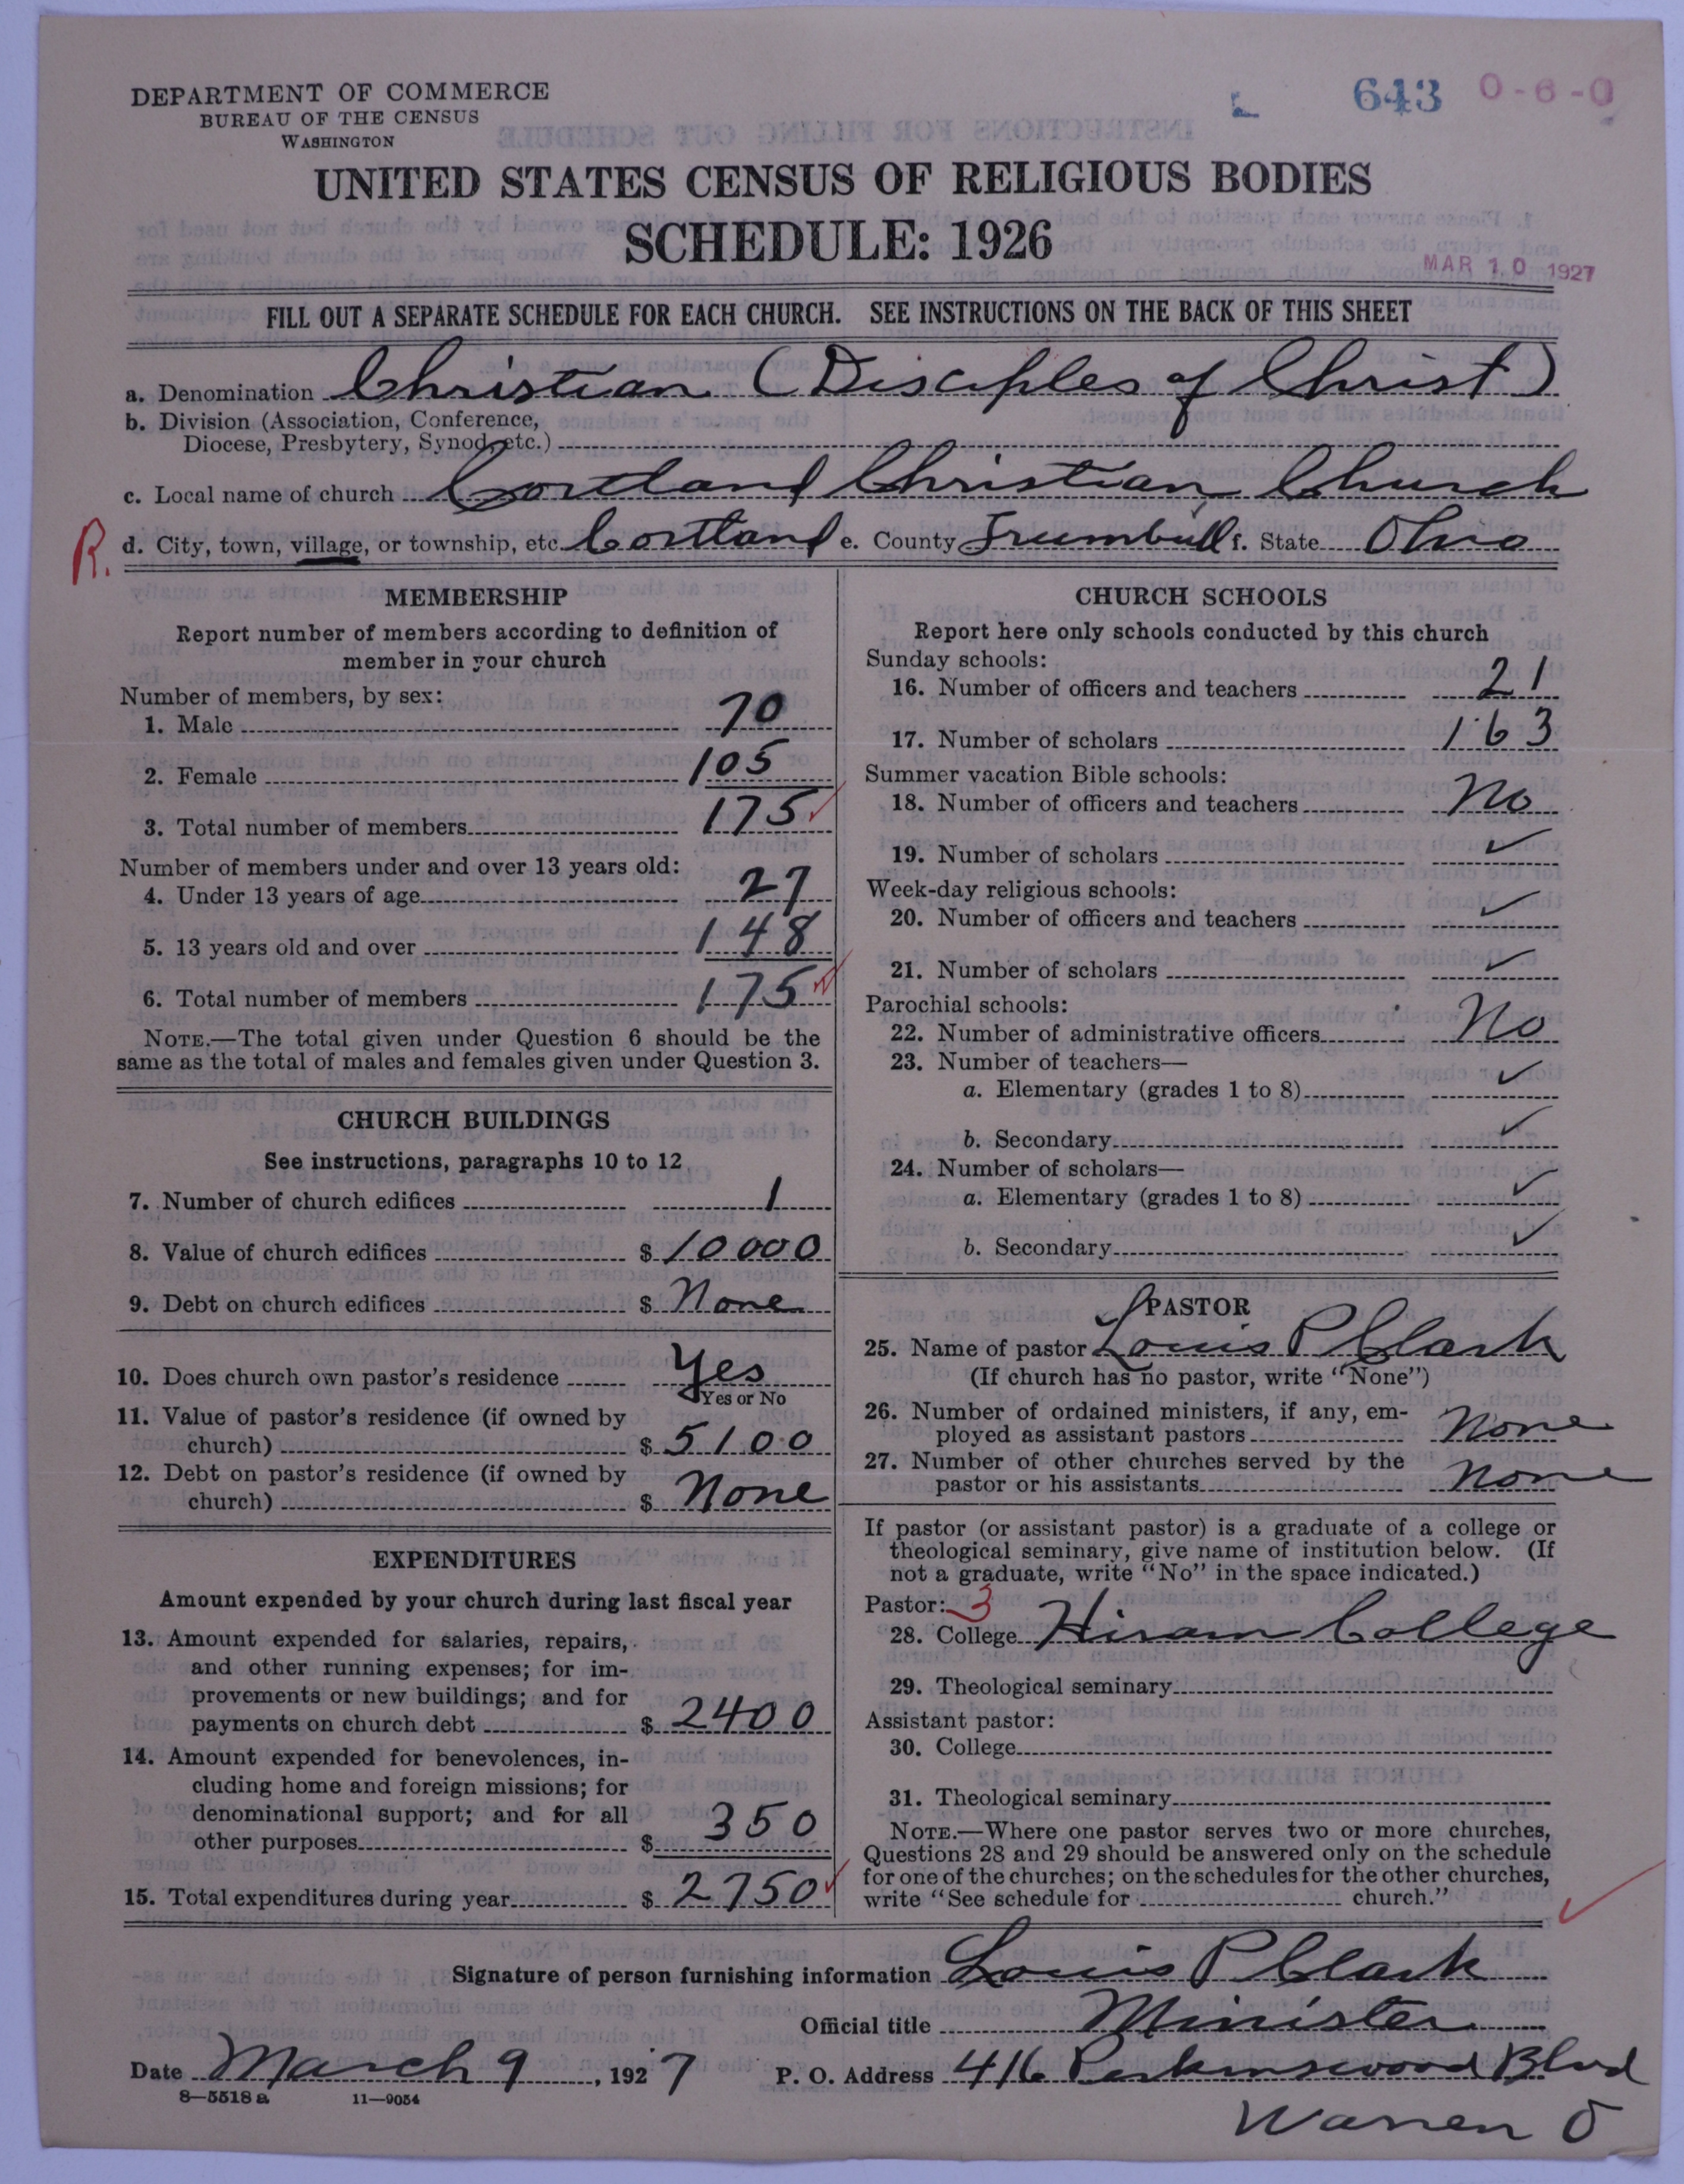 DEPARTMENT OF COMMERCE
BUREAU OF THE CENSUS
WASHINGTON
643 0-6-0
UNITED STATES CENSUS OF RELIGIOUS BODIES
SCHEDULE: 1926
MAR 10 1927
FILL OUT A SEPARATE SCHEDULE FOR EACH CHURCH. SEE INSTRUCTIONS ON THE BACK OF THIS SHEET
a. Denomination Christian (Disciples of Christ)
b. Division (Association, Conference,
Diocese, Presbytery, Synod, etc.)
c. Local name of church Cortland Christian Church
R. d. City, town, village, or township, etc Cortland e. County Trumbull f. State Ohio
MEMBERSHIP
Report number of members according to definition of
member in your church
Number of members, by sex:
1. Male 70
2. Female 105
3. Total number of members 175
Number of members under and over 13 years old:
4. Under 13 years of age 27
5. 13 years old and over 148
6. Total number of members 175
NOTE.—The total given under Question 6 should be the
same as the total of males and females given under Question 3.
CHURCH BUILDINGS
See instructions, paragraphs 10 to 12
7. Number of church edifices 1
8. Value of church edifices $ 10000
9. Debt on church edifices $ None
10. Does church own pastor's residence Yes
Yes or No
11. Value of pastor's residence (if owned by
church) $ 5100
12. Debt on pastor's residence (if owned by
church) $ None
EXPENDITURES
Amount expended by your church during last fiscal year
13. Amount expended for salaries, repairs,
and other running expenses; for im-
provements or new buildings; and for
payments on church debt $ 2400
14. Amount expended for benevolences, in-
cluding home and foreign missions; for
denominational support; and for all
other purposes $ 350
15. Total expenditures during year $ 2750
CHURCH SCHOOLS
Report here only schools conducted by this church
Sunday schools:
16. Number of officers and teachers 21
17. Number of scholars 163
Summer vacation Bible schools:
18. Number of officers and teachers No
19. Number of scholars ✓
Week-day religious schools:
20. Number of officers and teachers ✓
21. Number of scholars ✓
Parochial schools:
22. Number of administrative officers No
23. Number of teachers—
a. Elementary (grades 1 to 8) ✓
b. Secondary ✓
24. Number of scholars—
a. Elementary (grades 1 to 8) ✓
b. Secondary ✓
PASTOR
25. Name of pastor Louis P Clark
(If church has no pastor, write "None")
26. Number of ordained ministers, if any, em-
ployed as assistant pastors None
27. Number of other churches served by the
pastor or his assistants None
If pastor (or assistant pastor) is a graduate of a college or
theological seminary, give name of institution below. (If
not a graduate, write "No" in the space indicated.)
Pastor: 3
28. College Hiram College
29. Theological seminary
Assistant pastor:
30. College
31. Theological seminary
NOTE.—Where one pastor serves two or more churches,
Questions 28 and 29 should be answered only on the schedule
for one of the churches; on the schedules for the other churches,
write "See schedule for church."
Signature of person furnishing information Louis P Clark
Official title Minister
Date March 9, 1927 P. O. Address 416 Perkinswood Blvd
Warren O
8—5518 a 11—9054